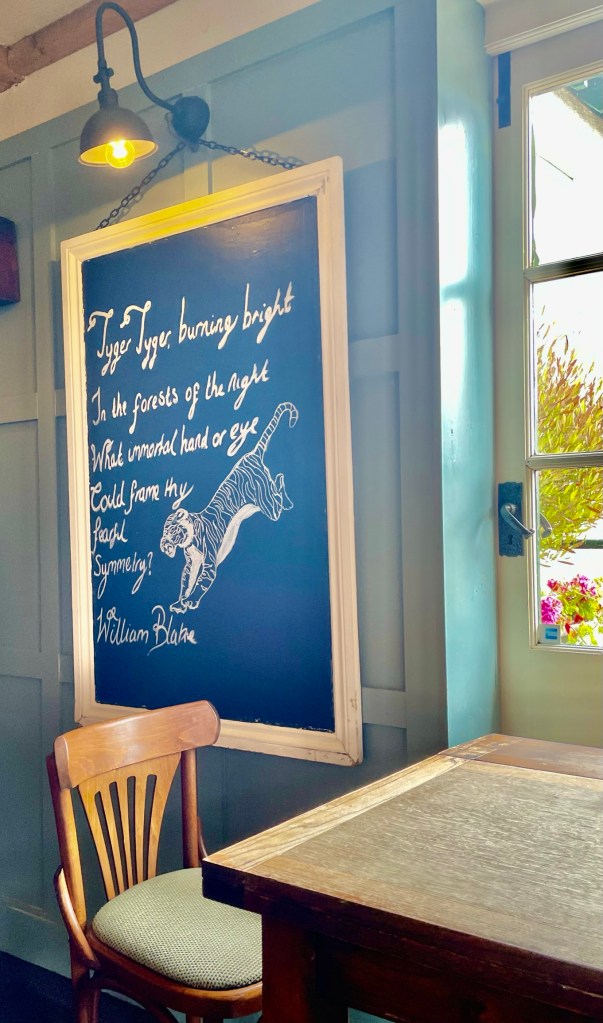 Tyger Tyger, burning bright
In the forests of the night
What immortal hand or eye
Could frame thy
fearful
Symmetry?
William Blake